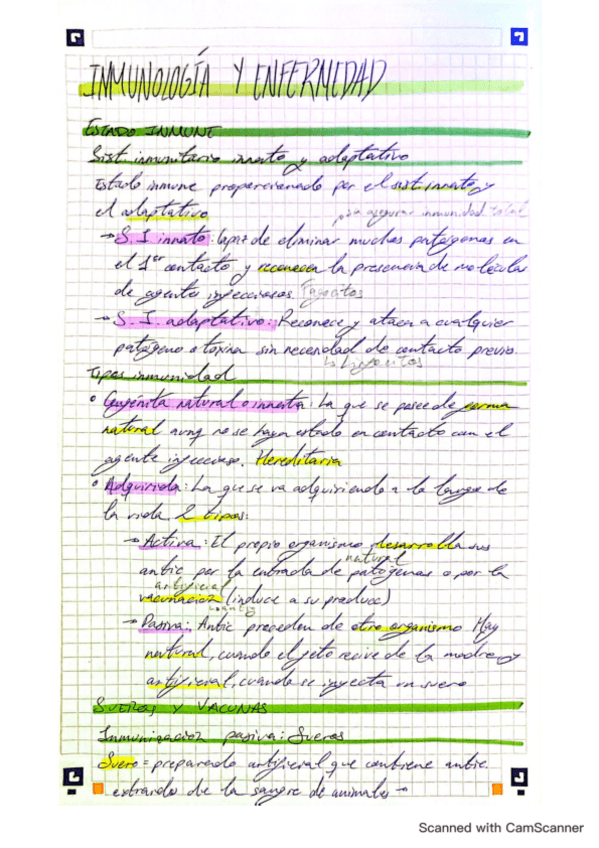 INMUNOLOGÍA Y ENFERMEDAD
ESTADO INMUNE
Sist inmunitario innato y adaptativo
Estado inmune proporcionado por el sist innato y
el adaptativo
para asegurar inmunidad total
→ S. I innato: capaz de eliminar muchos patógenos en
el 1er contacto y reconocen la presencia de moléculas
de agentes infecciosos. Fagocitos
→ S. I. adaptativo: Reconoce y ataca a cualquier
patógeno o toxina sin necesidad de contacto previo.
Linfocitos
Tipos inmunidad
Congénita natural o innata: La que se posee de forma
natural aunq no se haya estado en contacto con el
agente infeccioso. Hereditaria
Adquirida: La que se va adquiriendo a lo largo de
la vida 2 tipos:
→ Activa: El propio organismo desarrolla sus
natural
antic por la entrada de patógenos o por la
artificial
vacunación (induce a su produce)
→ Pasiva: Antic proceden de otro organismo. Hay
natural, cuando el feto recive de la madre, y
artificial, cuando se inyecta un suero
SUEROS Y VACUNAS
Inmunización pasiva: Sueros
Suero = preparado artificial que contiene antic.
extraido de la sangre de animales →
Scanned with CamScanner